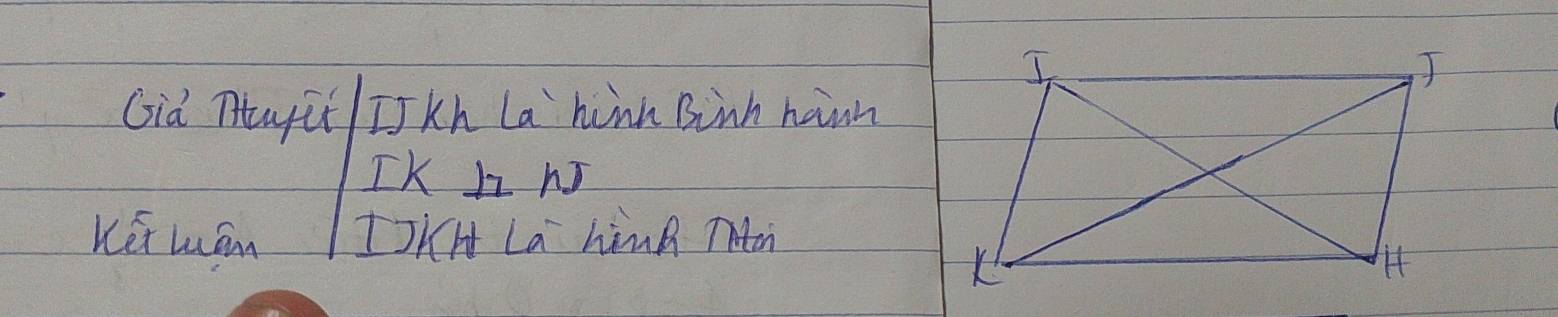 Giả Thuyết IJKh Là hình Bình hành
IK ⊥ hJ
Kết luận IJKH Là hình Thoi
I
J
K
H